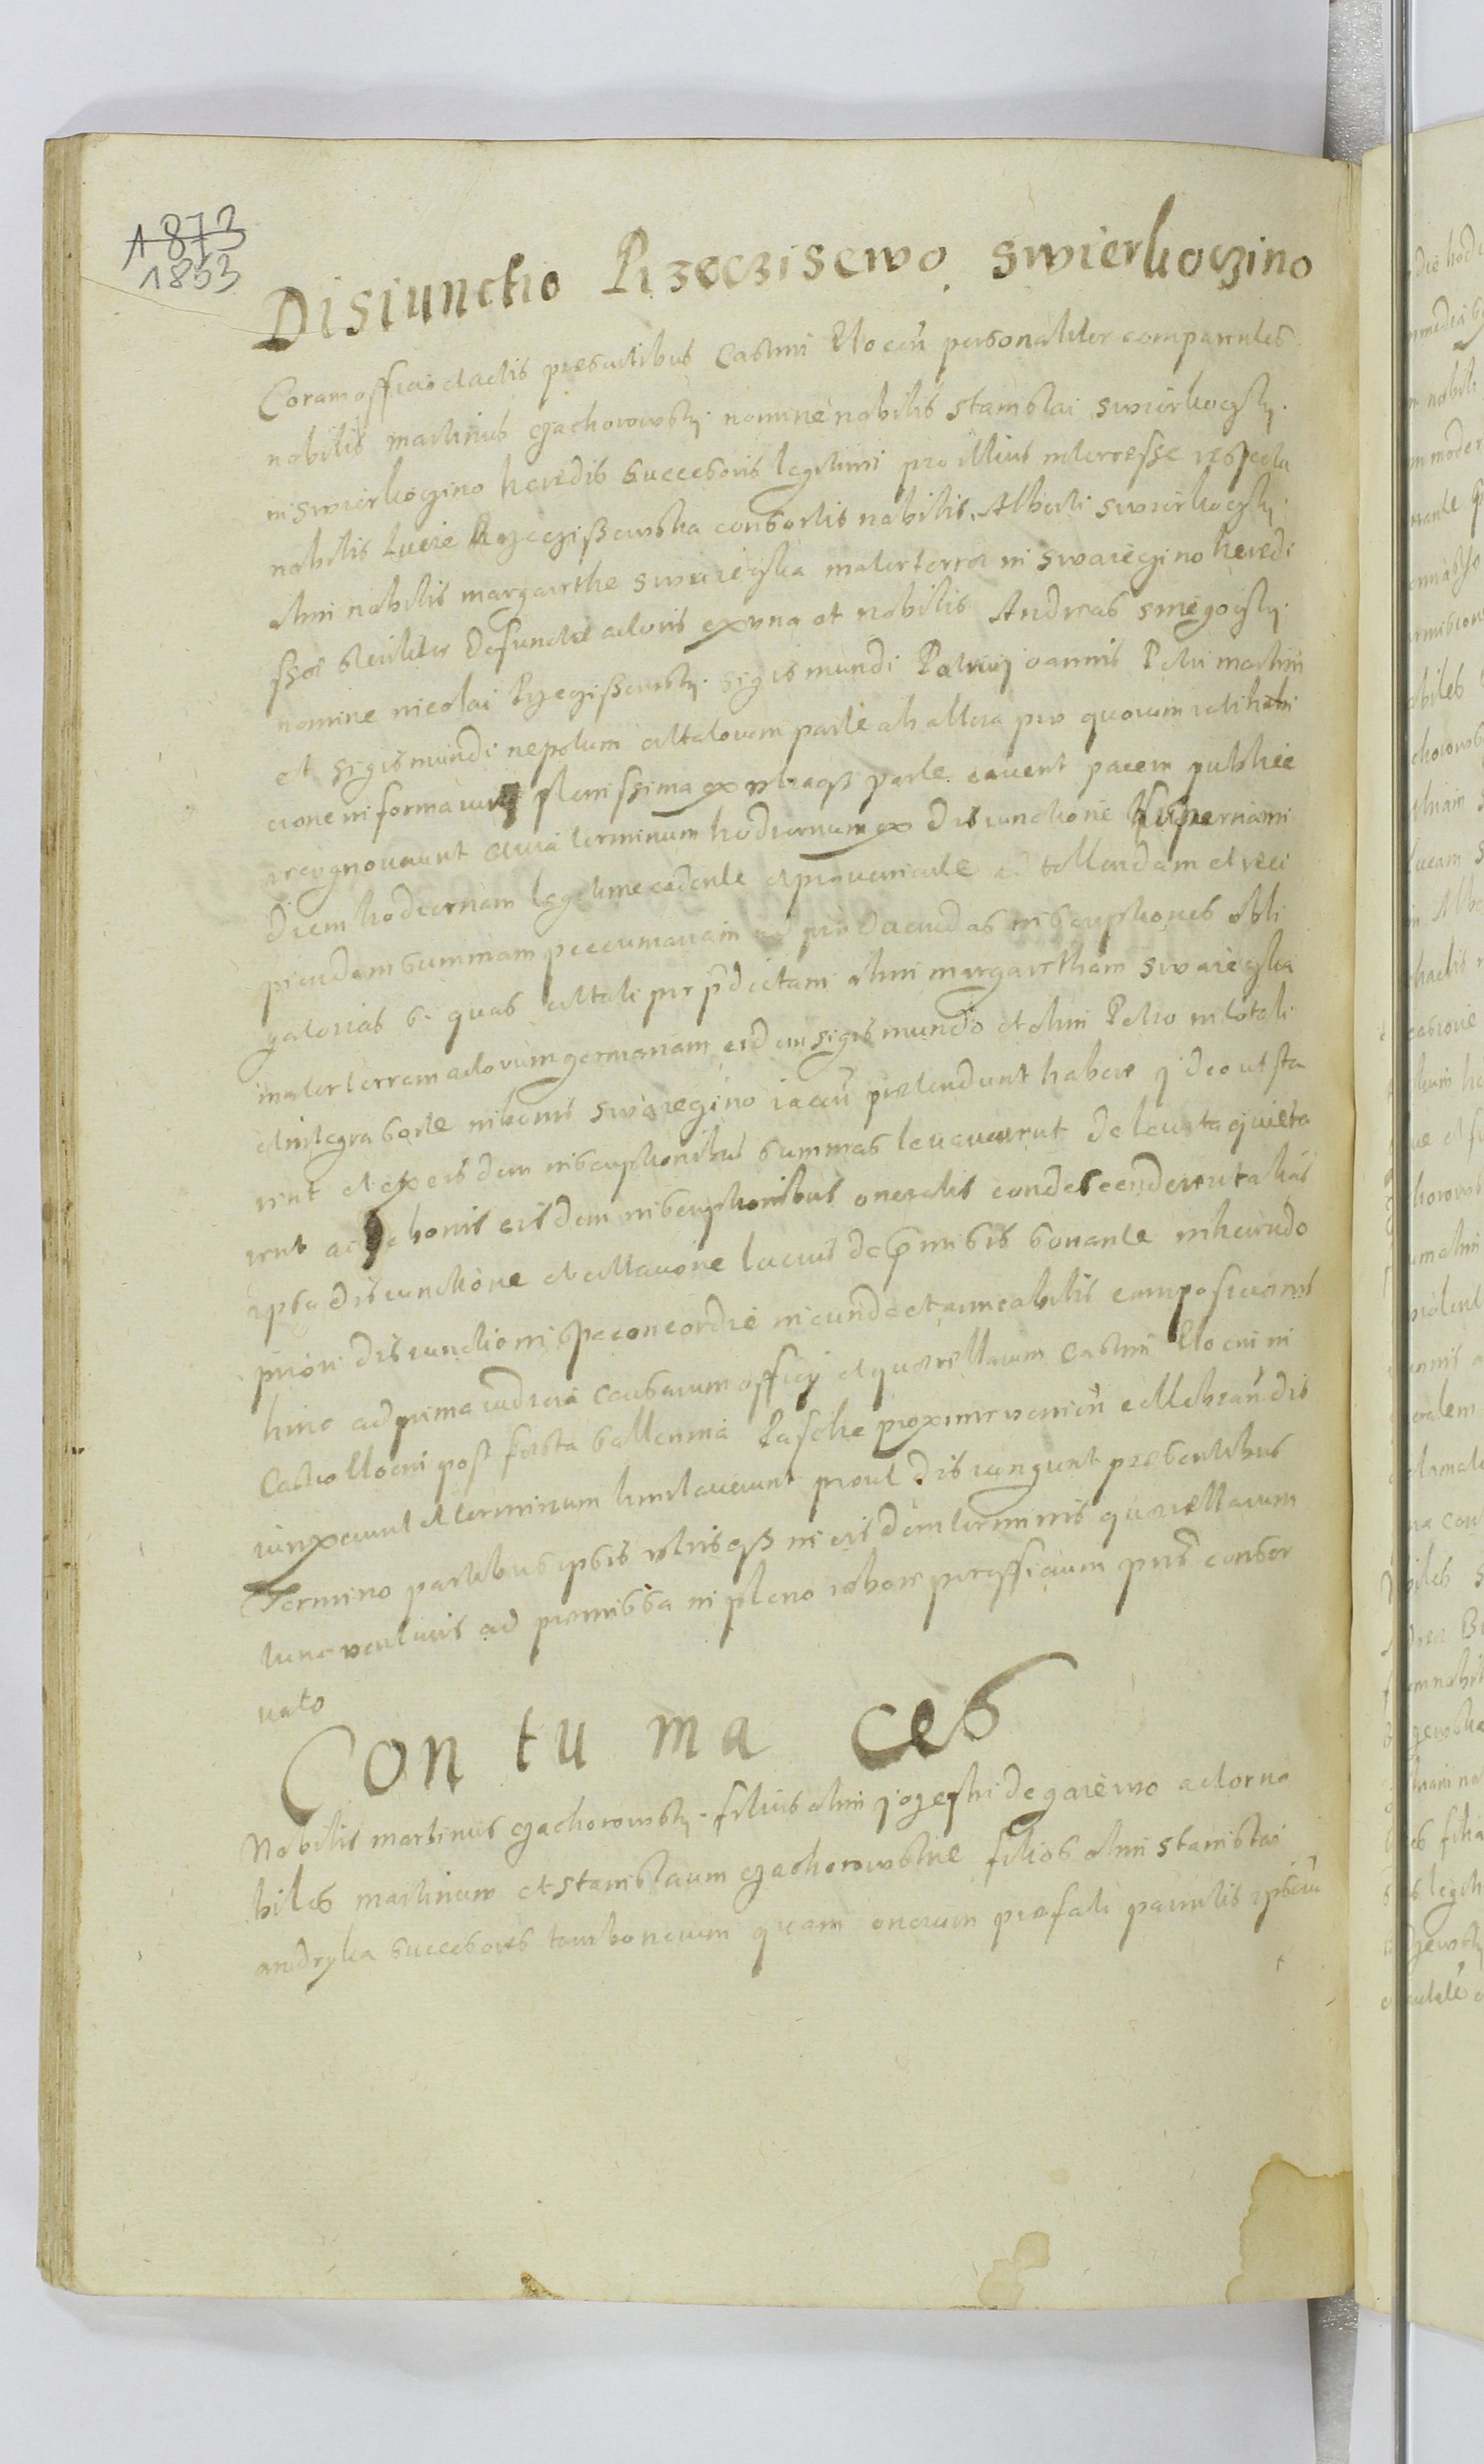 1873
1853
Disiunctio Rzeczisewo swierkoczino
Coram officio et actis presentibus Castrin Plocen personaliter comparentes
nobilis martinus czachorowsky nomine nobilis stanislai swierkoczky
in swierkoczino heredis successoris legitimi pro illius interesse respectu
nobilis Lucie Rzeczißewska consortis nobilis Alberti swierkoczky
olim nobilis margarethe swarieczka materterae in swariegino heredi
steriliter defuncte actoris ex vna et nobilis Andreas smegoczky
nomine nicolai Rzegißewsky sigismundi Patruj ioannis Petri martini
et sigismundi nepotum citatorum parte ab altera pro quorum ratihabi
cione in forma iuris plenissima ex vtraqz parte cavent pacem publice
recognoverunt quia terminum hodiernum ex disiunctione ad
diem hodiernam legitime cadente et proveniente ad tollendam et reci
piendam summam pecuniariam ad producendas inscriptiones obli
gatorias si quas citati per pdictam olim margaretham swarieczka
materterram actorum germanam eidem sigismundo et olim Petro in totali
et integra sorte in bonis swariegino iacen pretendunt habere ideo ut sta
rent et ex eisdem inscriptionibus summas levaverunt de levata quieta
rent ac de bonis eisdem inscriptionibus oneratis condescenderent alias
ipsa disiunctione et citatione lacius de premissis sonante inherendo
priori disiunctioni spe concordie ineunde et amicabilis composicionis
hinc ad prima iudicia causarum officij et querellarum Castrin Plocen in
Castro Plocen post festa sollennia Pasche proxime venien cellebrandis
iunxerunt et terminum limitaverunt prout disiungunt presentibus
Termino partibus ipsis vtrisqz in eisdem terminis querellarum
tunc venturis ad premissa in pleno robore per officium pns conser
vato
Con tu ma ces
Nobilis martinus czachorowsky filius olim jozephi de garewo actor no
biles martinum et stanislaum czachorowskie filios olim stanislai
andryka successores tam bonorum quam onerum prefati parentis ipsorum